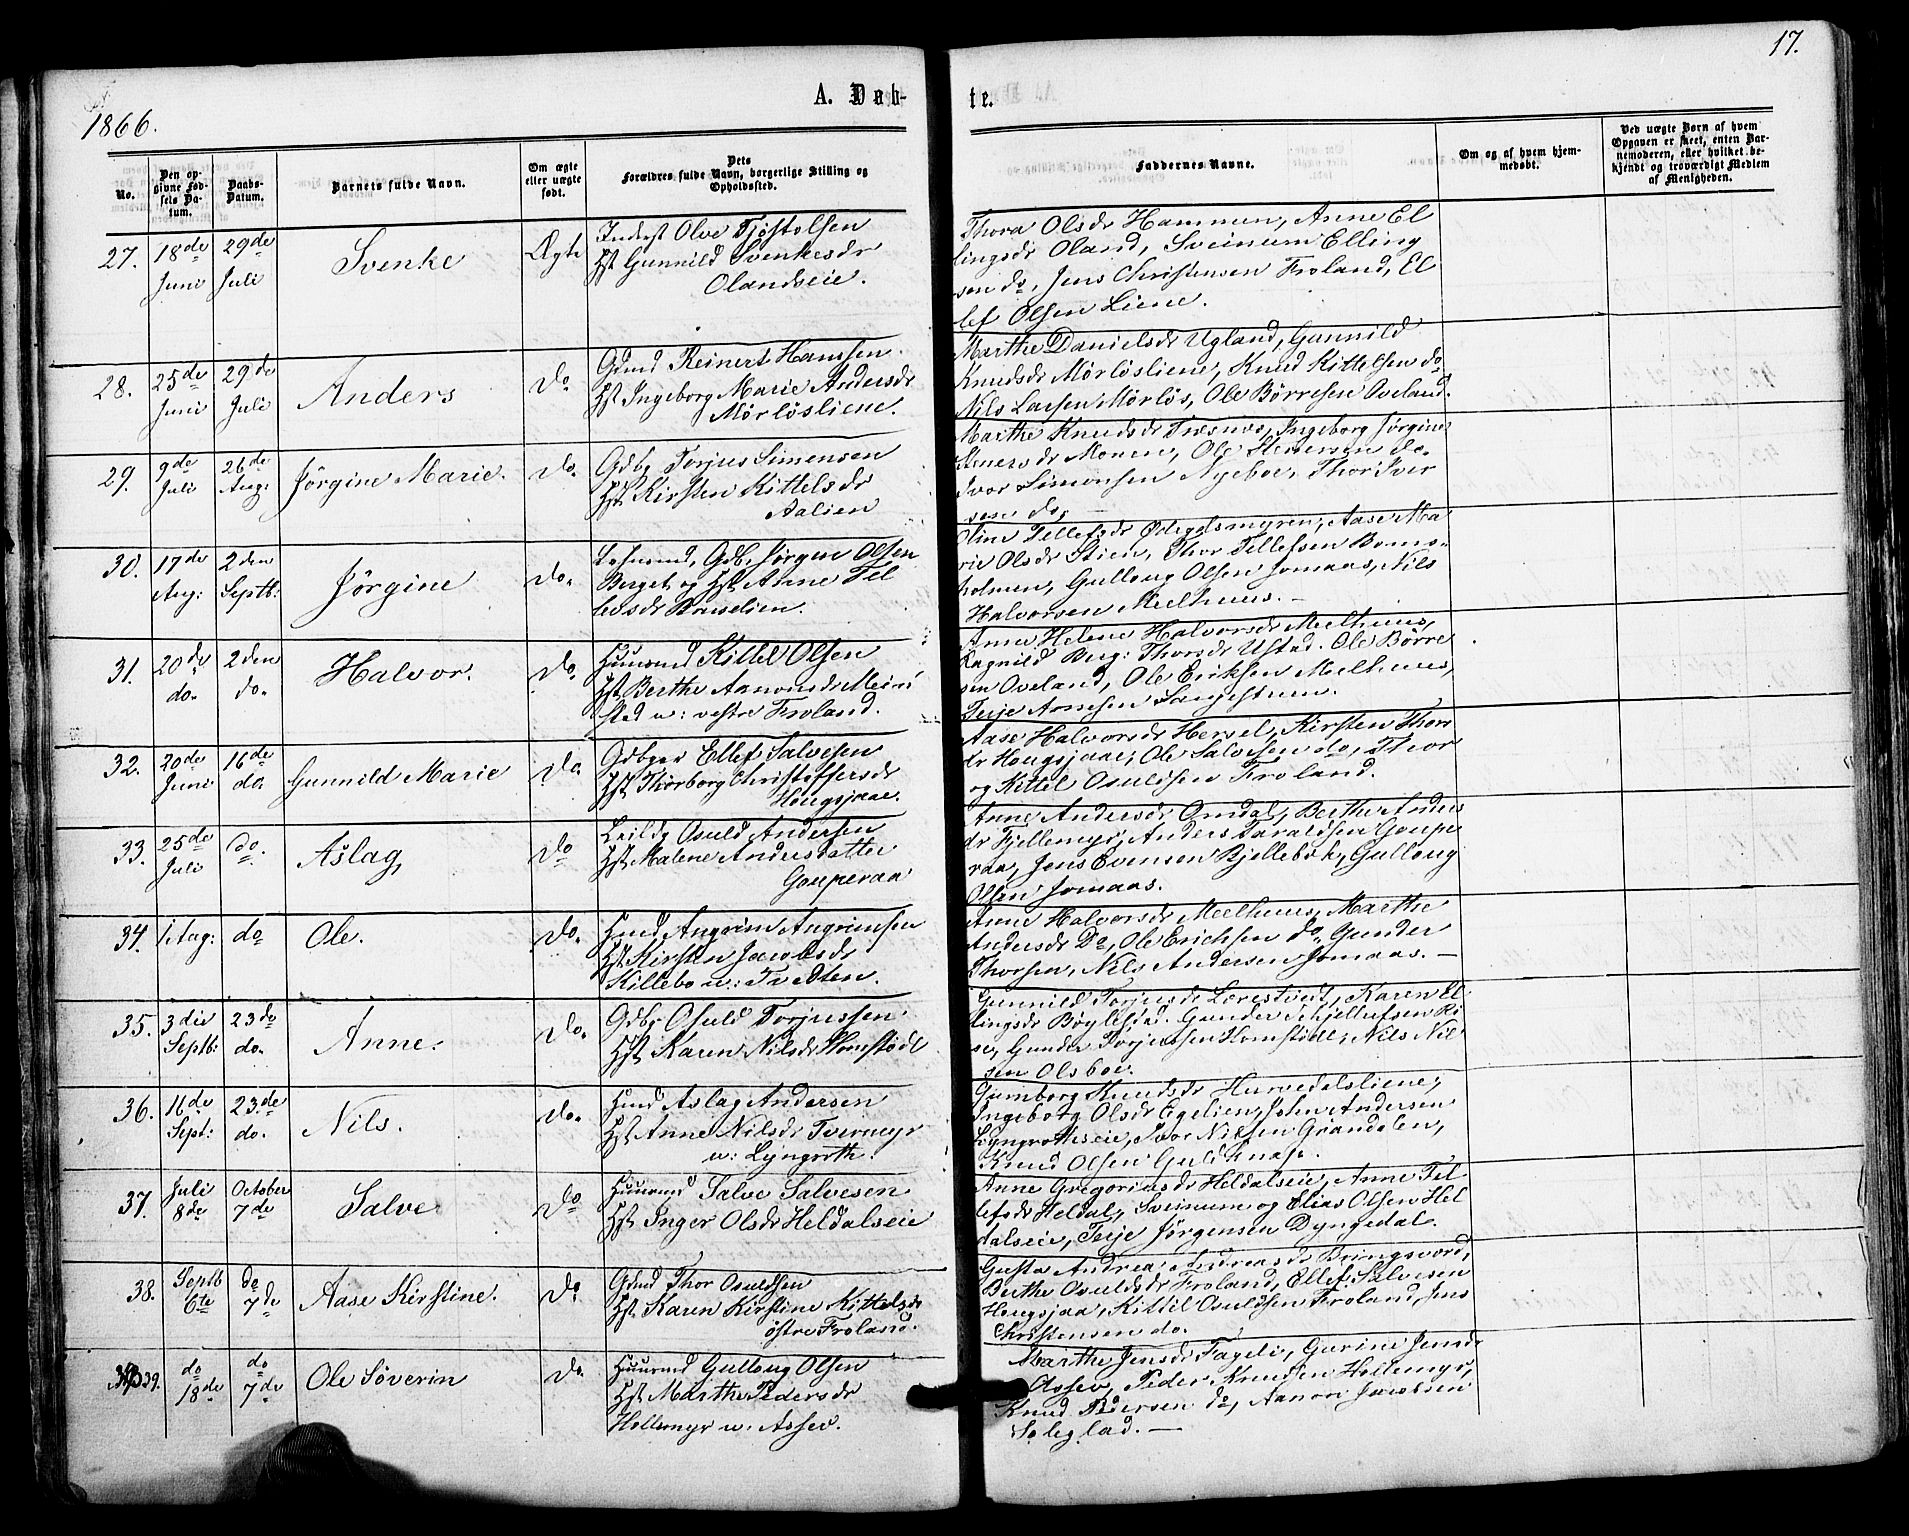 17.
A. Døb-
te.
1866.
No.
Den op-
givne Fød-
sels Da-
tum.
Daabs-
Datum.
Barnets fulde Navn.
Om ægte
eller uægte
født.
Dets
Forældres fulde Navn, borgerlige Stilling og
Opholdssted.
Faddernes Navne.
Om og af hvem hjem-
medøbt.
Ved uægte Børn af hvem
Opgaven er skeet, enten Bar-
nemoderen, eller hvilket be-
kjendt og troværdigt Medlem
af Menigheden.
27.
18de
Juni
29de
Juli
Svenke
Ægte
Inderst Olve Tjøstolsen
Hst Gunnild Svenkesdr
Olandseie.
Thora Olsdr Hammen, Anne El
lingsdr Oland, Sveinum Elling
sen do, Jens Christensen Froland, El
lef Olsen Liene.
28.
25de
Juni
29de
Juli
Anders
do
Gdmd Reinert Hanssen.
Hst Ingeborg Marie Andersdr
Mörlösliene.
Marthe Danielsdr Ugland, Gunnild
Knudsdr Mörlösliene, Knud Kittelsen do
Nils Larsen Mörlös, Ole Börresen Oveland.
29.
9de
Juli
26de
Aug:
Jörgine Marie.
do.
Gdbr Torjus Simensen
Hst Kirsten Kittelsdr
Aalien
Marthe Knudsdr Træsnes, Ingeborg Jörgine
Stenersdr Monen, Ole Stenersen do.
Ivor Simonsen Nyeboe, Thor Iver
sen do.
30.
17de
Aug:
2den
Septb:
Jörgine
do.
Gdb. Jörgen Olsen
Berget og Hst Anne Tel
lefsdr Bruselien.
Olsdr Stien, Thor Tellefsen Boms-
holmen, Gulloug Olsen Jomaas, Nils
Halvorsen Meelhuus.—
31.
20de
do.
2den
do.
Halvor.
do.
Huusmd Kittel Olsen
Hst Berthe Aanonsdr Meiri
sted u: vestre Froland.
Anne Helene Halvorsdr Meelhuus,
Ragnild Berg: Thorsdr Ustad. Ole Börre
sen Oveland, Ole Eriksen Meelhuus,
Terje Arnesen
32.
20de
Juni
16de
do.
Gunnild Marie
do
Ellef Salvesen
Hst Thorborg Christoffersdr
Hougsjaae.
Aase Halvorsdr Hervel, Kirsten Thors
dr Hougsjaae, Ole Salvesen do, Thor
og Kittel Osuldsen Froland.
33.
25de
Juli
do.
Aslag,
do
Leildg Osuld Andersen
Hst Malene Andersdatter
Gouperaa
Anne Andersdr Omdal, Berthe Anders
dr Fjellemyr, Anders Taraldsen Goupe
raa, Jens Evensen Gulloug
Olsen Jomaas.
34.
1 Aug:
do
Ole.
do.
Hmd Angrim Angrimsen
Hst Kirsten Jacobsdr
Killebo u: Tvedten.
Anne Halvorsdr Meelhuus, Marthe
Andersdr Do, Ole Erichsen do, Gunder
Thorsen, Nils Andersen Jomaas.—
35.
3die
Septb:
23de
do.
Anne.
do.
Gdbr Osuld Torjussen
Hst Karen Nilsdr Homstödt
Gunnild Torjusdr Lærestvedt, Karen El
lingsdr Böylestad. Gunder Ri
se, Gunder Torjussen Homstödt, Nils Nil
sen Olsboe.
36.
16de
Sept:
23de
do.
Nils.
do.
Hmd Aslag Andersen
Hst Anne Nilsdr Tvermyr
u: Lyngroth.
Gumborg Knudsdr Hurvedalsliene,
Ingeborg Olsdr Egelien, John Andersen
Lyngrothseie, Ivor Nilsen Grandalen,
Knud Olsen Guldknap.
37.
Juli
8de
October
7de
Salve
do
Huusmd Salve Salvesen
Hst Inger Olsdr Heldalseie
Anne Gregoriusdr Heldalseie, Anne Tel
lefsdr Heldal, Sveinum og Elias Olsen Hel
dalseie, Terje Jörgensen Dyngedal.
38.
Septb
6te
do
7de
Aase Kirstine.
do
Gdmd Thor Osuldsen
Hst Karen Kirstine Kittelsdr
östre Froland.
Gusta Andrea Andreasdr Bringsvord,
Berthe Osuldsdr Froland, Ellef Salvesen
Hougsjaa, Kittil Osuldsen Froland, Jens
Christensen do.
39.
do
18de
do
7de
Ole Söverin
do.
Huusmd Gulloug Olsen
Hst Marthe Pedersdr
Hollemyr u: Assev.
Marthe Jensdr Fageli, Gurine Jensdr
Assev, Peder Knudsen Hollemyr,
Knud Pedersen do, Aanon Jacobsen
Soleglad.—